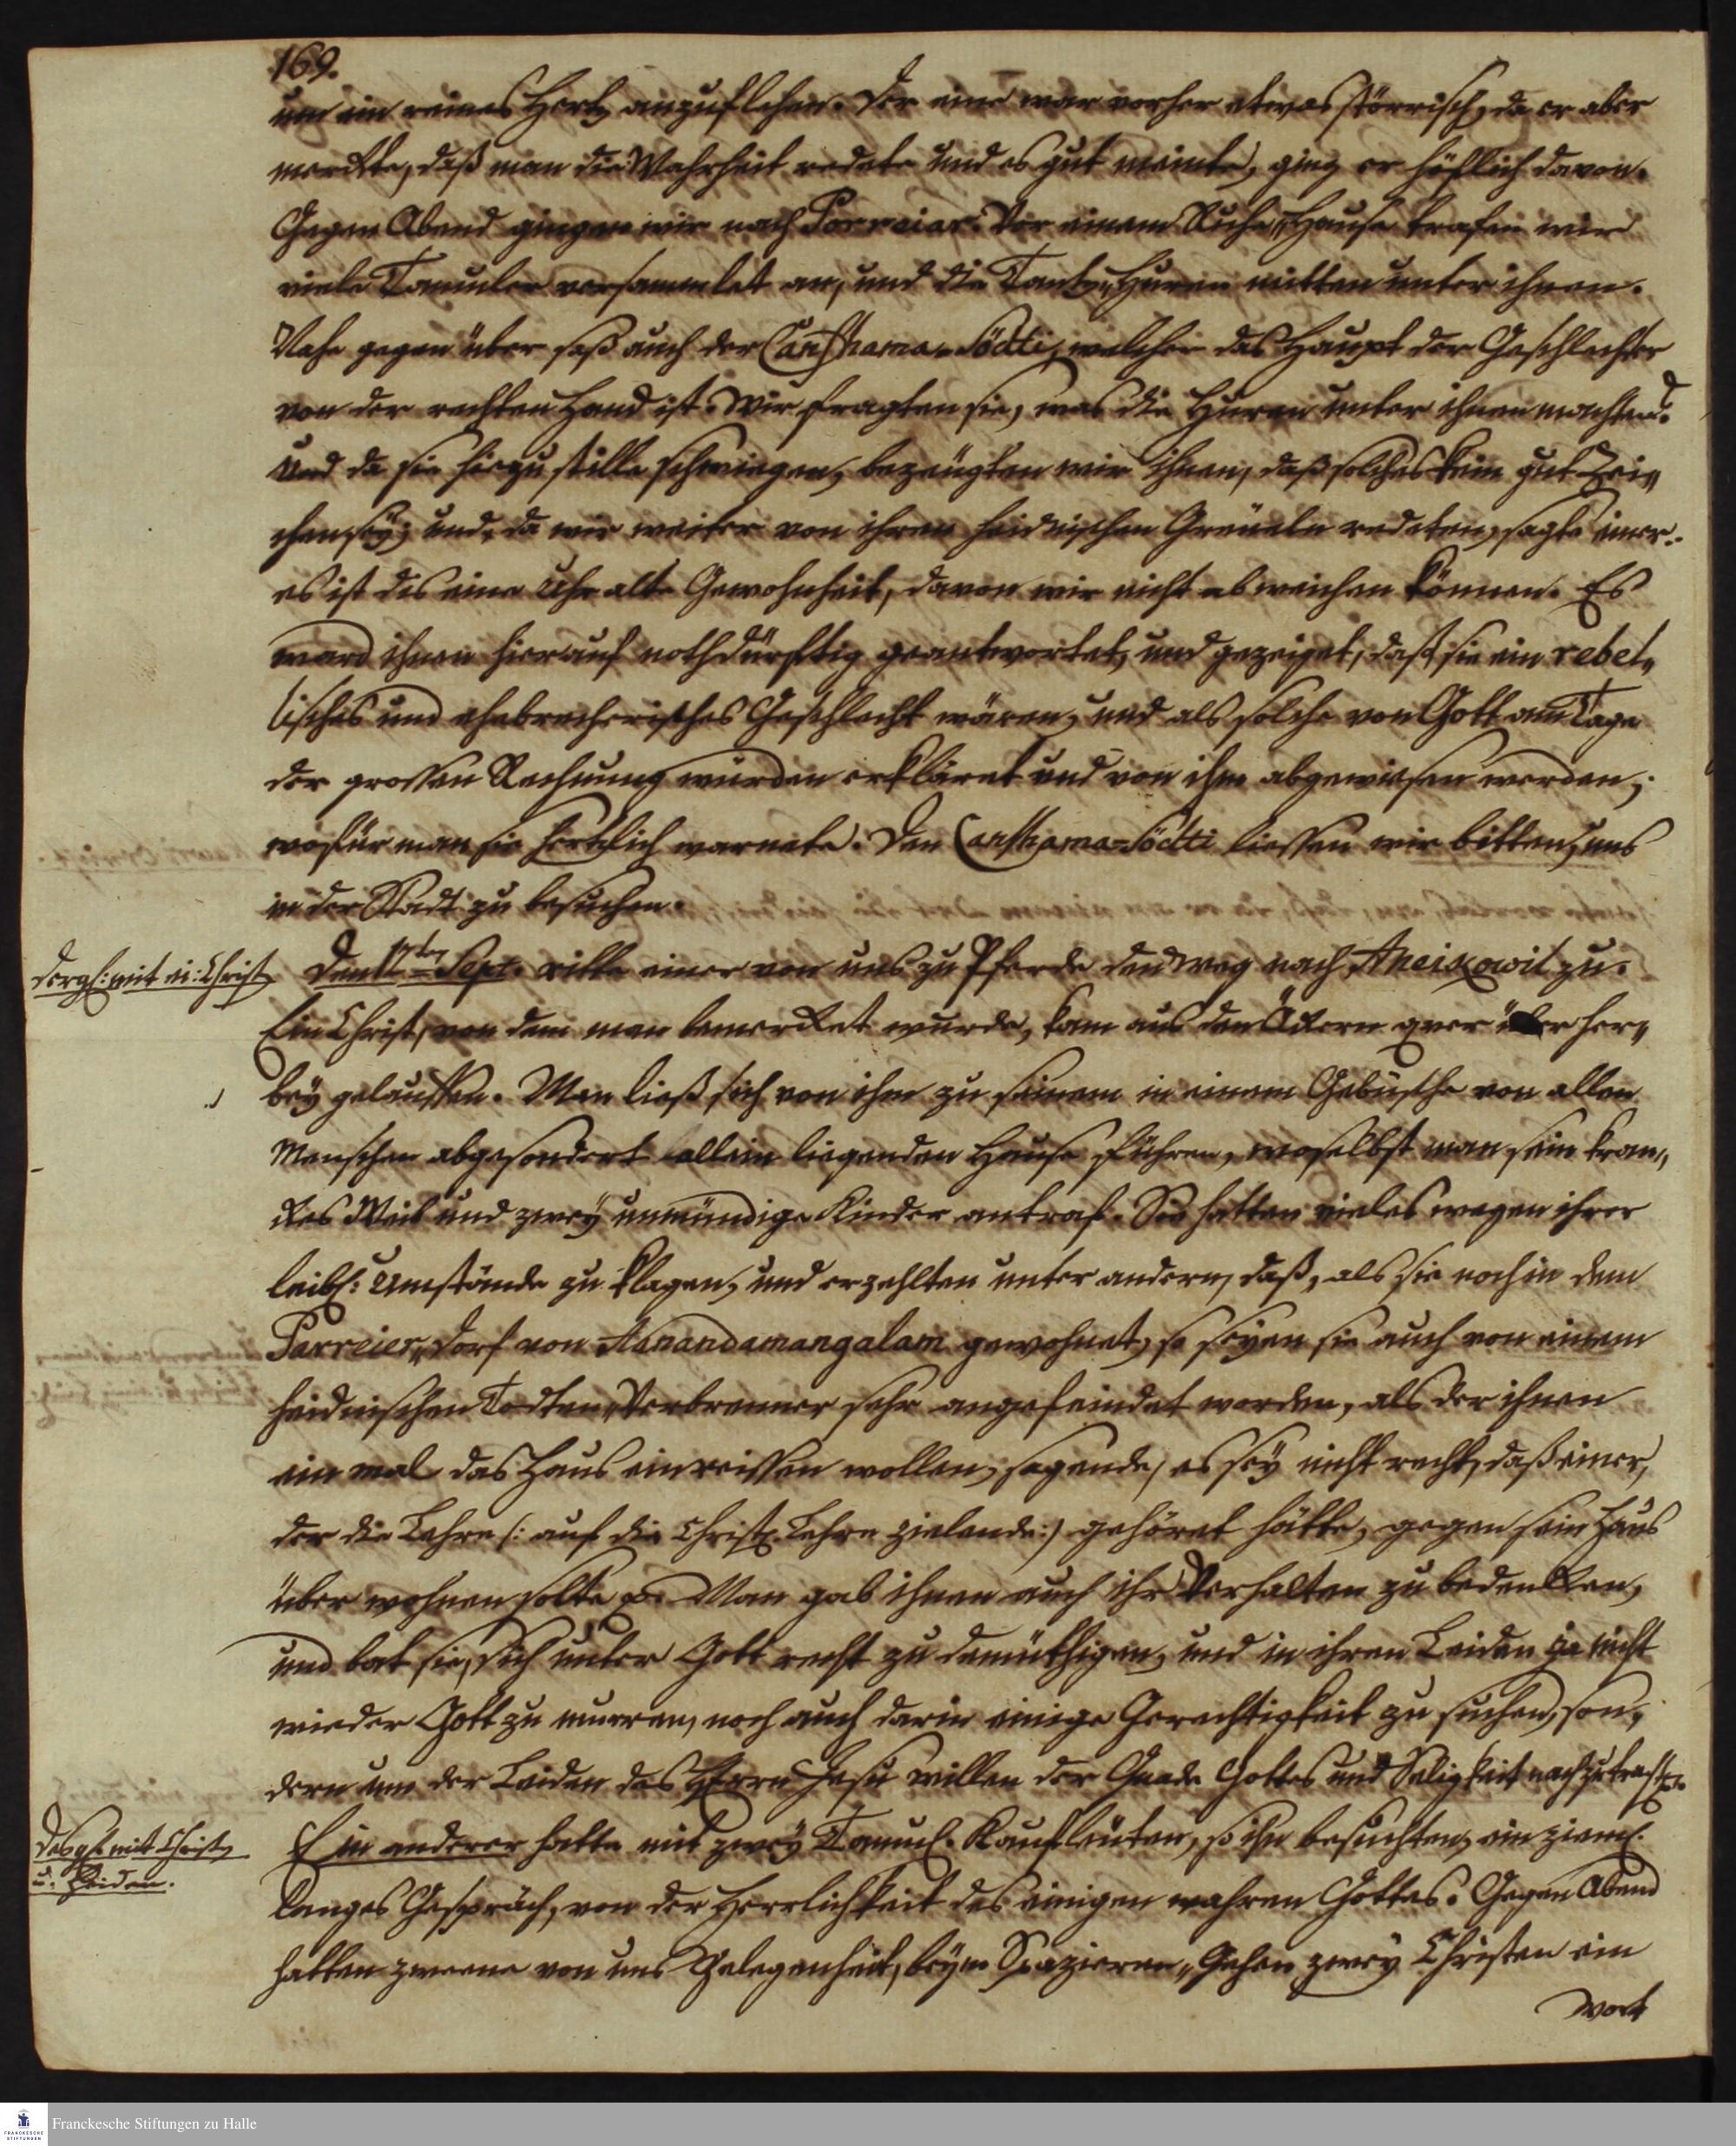 169.
um ein reines Hertz anzuflehen. Der eine war vorher etwas störrisch, da er aber
merckte, daß man die Wahrheit redete und es gut meinte, ging er höflich davon.
Gegen Abend gingen wir nach Porreiar. Vor einem Ruhe„Hause trafen wir
viele Tamuler versammlet an, und die Tantz„Huren mitten unter ihnen.
Nahe gegen über saß auch der Södti, welcher das Haupt der Geschlechter
von der rechten Hand ist. Wir fragten sie, was die Huren unter ihnen machten?
Und da sie hiezu stille schwiegen, bezeugten wir ihnen, daß solches kein gut Zei„
chen sey; und, da wir weiter von ihren heidnischen Greueln redeten, sagte einer:
es ist dis eine Uhr alte Gewohnheit, davon wir nicht abweichen können. Es
ward ihnen hierauf nothdürftig geantwortet, und gezeiget, daß sie ein rebel„
lisches und ehebrecherisches Geschlecht wären, und als solche von Gott am Tage
der grossen Rechnung würden erkläret und von ihm abgewiesen werden;
wofür man sie hertzlich warnete. Den Södti liessen wir bitten, uns
in der Stadt zu besuchen.
dergl: mit ei: Christ
Den 17ten Sept. ritte einer von uns zu Pferde den Weg nach Aneikowil zu.
Ein Christ, von dem man bemercket wurde, kam aus den Äckern quer über her„
bey gelauffen. Man ließ sich von ihm zu seinem in einem Gebüsche von allen
Menschen abgesondert allein liegenden Hause führen, woselbst man sein kran„
ckes Weib und zwey unmündige Kinder antraf. Sie hatten vieles wegen ihrer
leibl: Umstände zu klagen, und erzehlten unter andern, daß, als sie noch in dem
Parreier„Dorf von Anandamangalam gewohnet, so seyen sie auch von einem
heidnischen Todten„Verbrenner sehr angefeindet worden, als der ihnen
ein mal das Haus einreissen wollen, sagende, es sey nicht recht, daß einer,
der die Lehre (: auf die Christl. Lehre zielende:) gehöret hätte, gegen sein Haus
über wohnen solte p. Man gab ihnen auch ihr Verhalten zu bedencken,
und bat sie, sich unter Gott recht zu demüthigen, und in ihren Leiden ja nicht
wieder Gott zu murren, noch auch darin einige Gerechtigkeit zu suchen, son„
dern um der Leiden des Herrn Jesu willen der Gnade Gottes und Seligkeit nachzutrachten.
desgl. mit Christ.
u. Heiden.
Ein anderer hatte mit zwey Tamul. Kaufleuten, so ihn besuchten, ein zieml.
langes Gespräch, von der Herrlichkeit des einigen wahren Gottes. Gegen Abend
hatten zweene von uns Gelegenheit, beym Spazieren„Gehen zwey Christen ein
Wort
Franckesche Stiftungen zu Halle
FRANCKESCHE
STIFTUNGEN